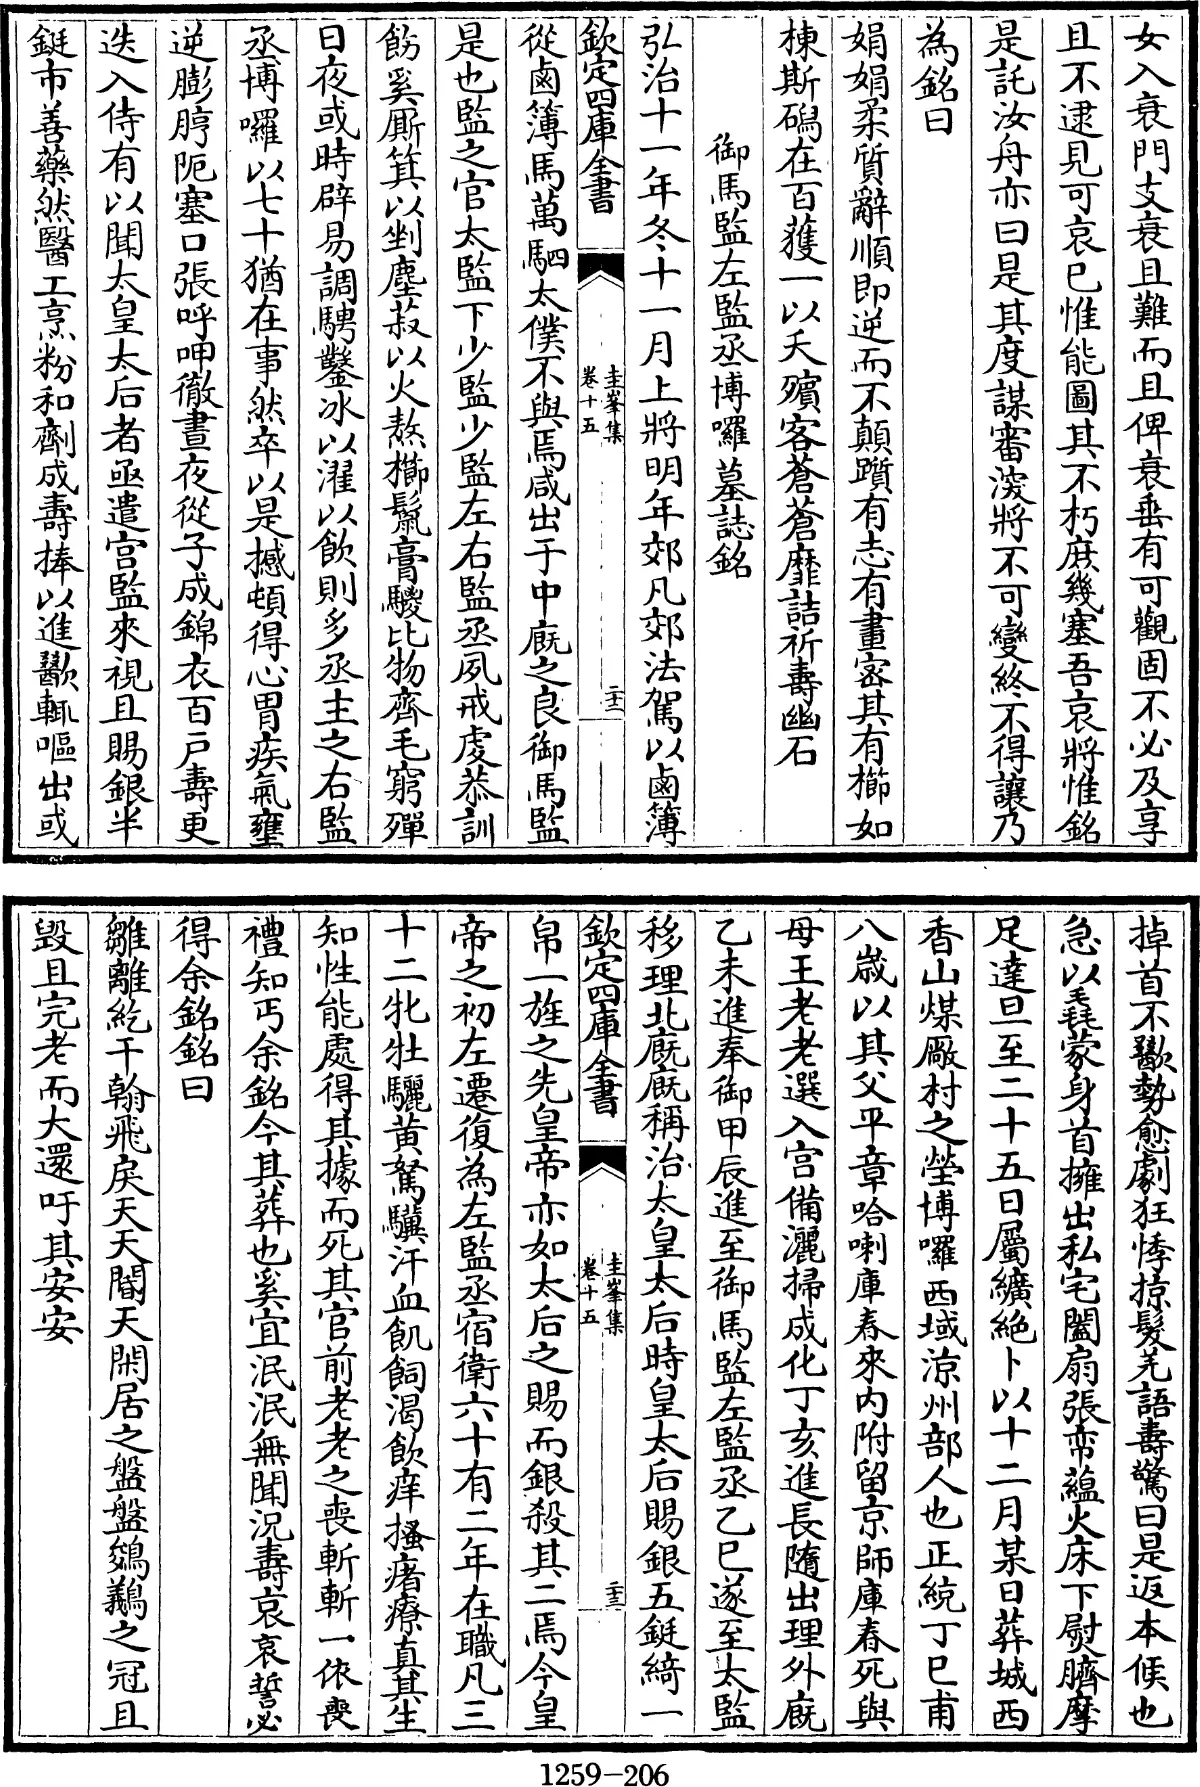 女入衰門支衰且難而且俾衰垂有可觀固不必及享
且不逮見可哀已惟能圖其不朽庶幾塞吾哀將惟銘
是託汝舟亦曰是其度謀審淡將不可變終不得讓乃
為銘曰
娟娟柔質辭順即逆而不顛躓有志有畫密其有櫛如
棟斯碣在百獲一以夭殯客蒼蒼靡詰祈壽幽石
御馬監左監丞博囉墓誌銘
弘治十一年冬十一月上將明年郊凡郊法駕以鹵簿
欽定四庫全書
圭峯集
卷十五
二十二
從鹵簿馬萬駟太僕不與焉咸出于中廐之良御馬監
是也監之官太監下少監少監左右監丞夙戒虔恭訓
飭奚厮箕以剉塵菽以火熬櫛鬣膏騣比物齊毛窮殫
日夜或時辟易調騁鑿冰以濯以飲則多丞主之右監
丞博囉以七十猶在事然卒以是撼頓得心胃疾氣壅
逆膨脝阨塞口張呼呷徹晝夜從子成錦衣百戶壽更
迭入侍有以聞太皇太后者亟遣宫監來視且賜銀半
鋌市善藥然醫工烹粉和劑成壽捧以進歠輒嘔出或
掉首不歠勢愈劇狂悸掠髮羌語壽驚曰是返本候也
急以毳蒙身首擁出私宅闔扇張帟蘊火床下熨臍摩
足達旦至二十五日屬纊絶卜以十二月某日葬城西
香山煤廠村之塋博囉西域涼州部人也正統丁巳甫
八歲以其父平章哈喇庫春來内附留京師庫春死與
母王老老選入宫備灑掃成化丁亥進長隨出理外廐
乙未進奉御甲辰進至御馬監左監丞乙巳遂至太監
移理北廐廐稱治太皇太后時皇太后賜銀五鋌綺一
欽定四庫全書
圭峯集
卷十五
二十三
帛一旌之先皇帝亦如太后之賜而銀殺其二焉今皇
帝之初左遷復為左監丞宿衛六十有二年在職凡三
十二牝牡驪黄駑驥汗血飢飼渴飲痒搔瘏療真其生
知性能處得其據而死其官前老老之喪斬斬一依喪
禮知丐余銘今其葬也奚宜泯泯無聞況壽哀哀誓必
得余銘銘曰
雝離紇干翰飛戾天天閽天閑居之盤盤鵕鸃之冠且
毀且完老而大還吁其安安
1259-206